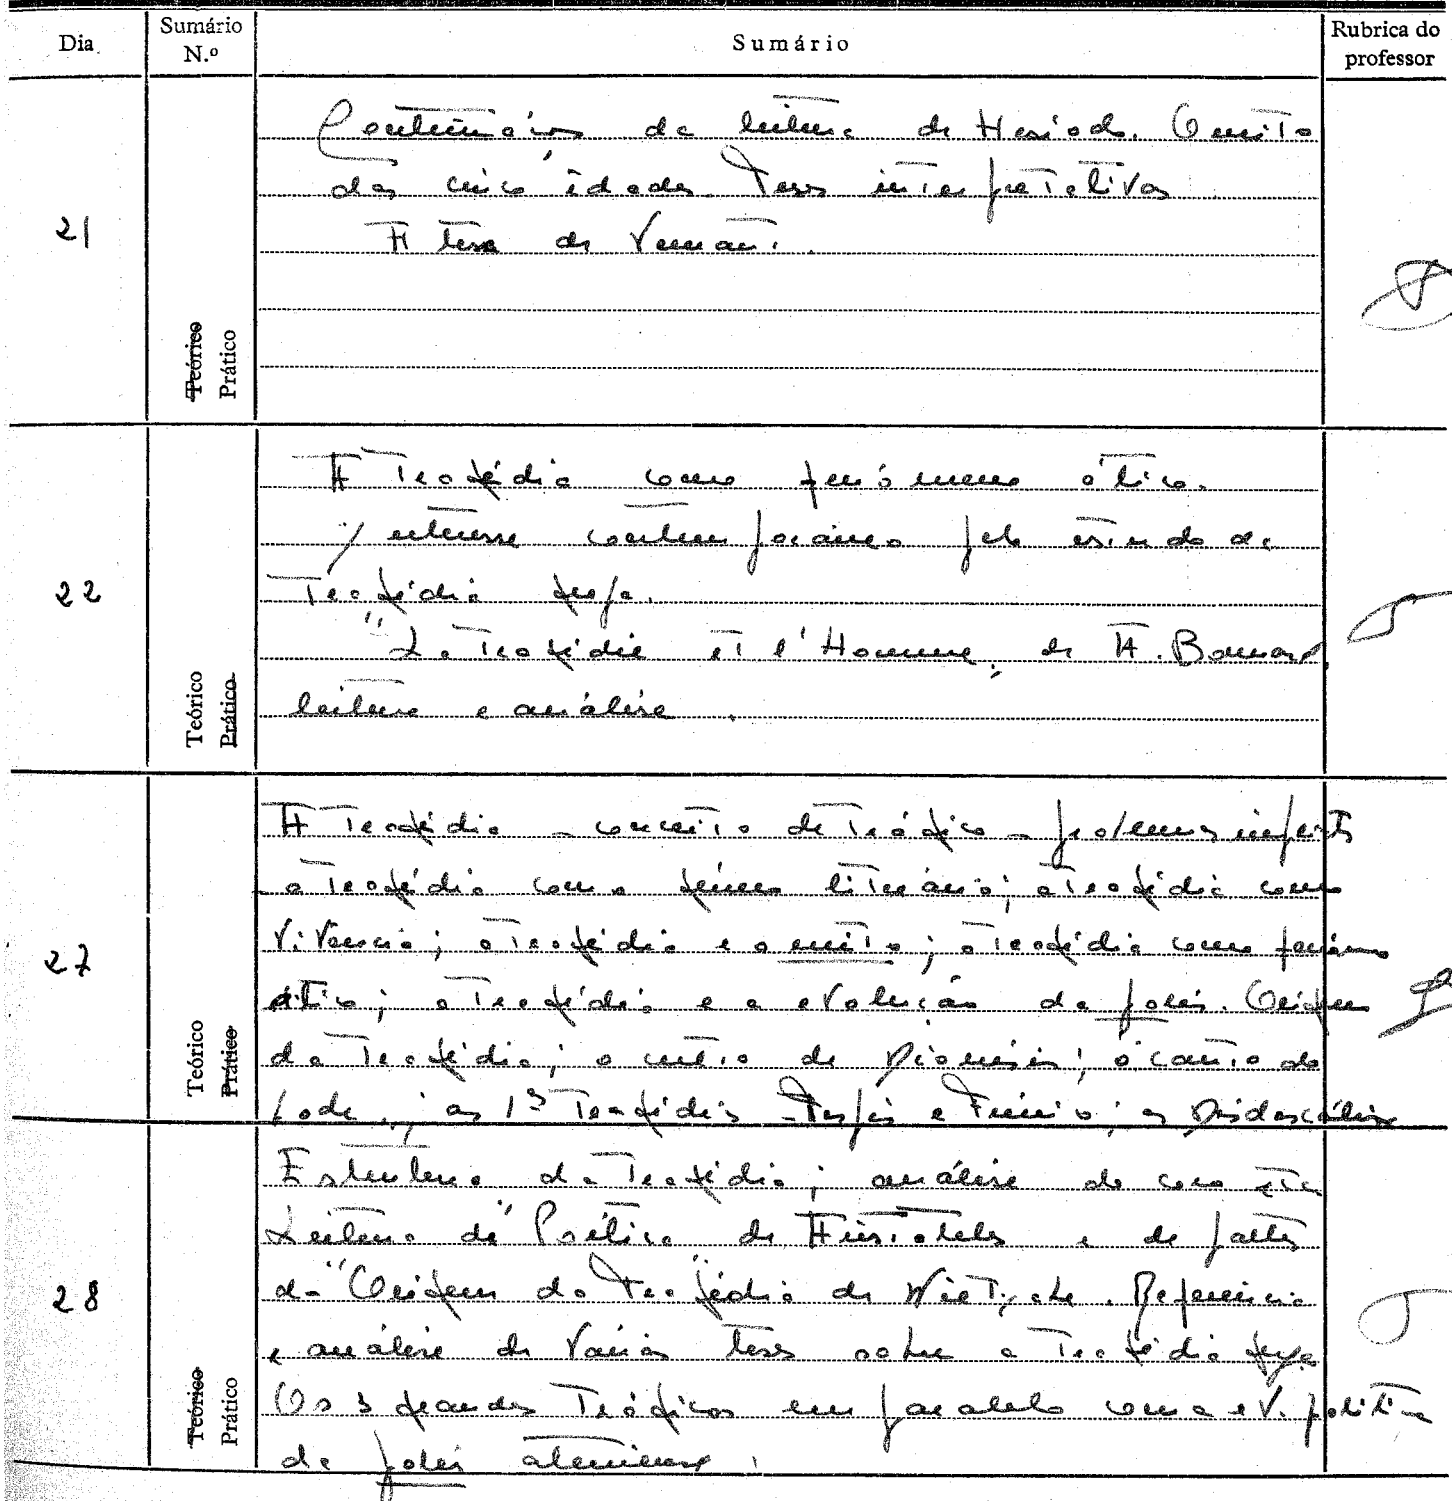 Dia
Sumário N.º
Sumário
Rubrica do professor
21
Teórico
Prático
Comentários da leitura de Hesíodo. O mito
das cinco idades. Teses interpretativas
A tese de Vernant.
22
Teórico
Prático
A Tragédia como fenómeno ático.
Interesse contemporâneo pelo estudo da
Tragédia grega.
"La Tragédie et l'Homme, de A. Bonnard
leitura e análise.
27
Teórico
Prático
A Tragédia - conceito de Trágico -
a Tragédia como género literário; a Tragédia como
vivência; a Tragédia e o mito; a Tragédia como fenómeno
ático; a Tragédia e a evolução da polis. Origem
da Tragédia; o culto de Dionisos; o canto do
bode; as 1ªs Tragédias - Tespis e Frínico; as Didascálias
28
Teórico
Prático
Estrutura da Tragédia; análise do coro etc
Leitura da "Poética" de Aristóteles e de partes
da "Origem da Tragédia" de Nietzsche. Referência
e análise de várias teses sobre a Tragédia grega
Os 3 grandes Trágicos em paralelo com a ev. política
da polis ateniense.